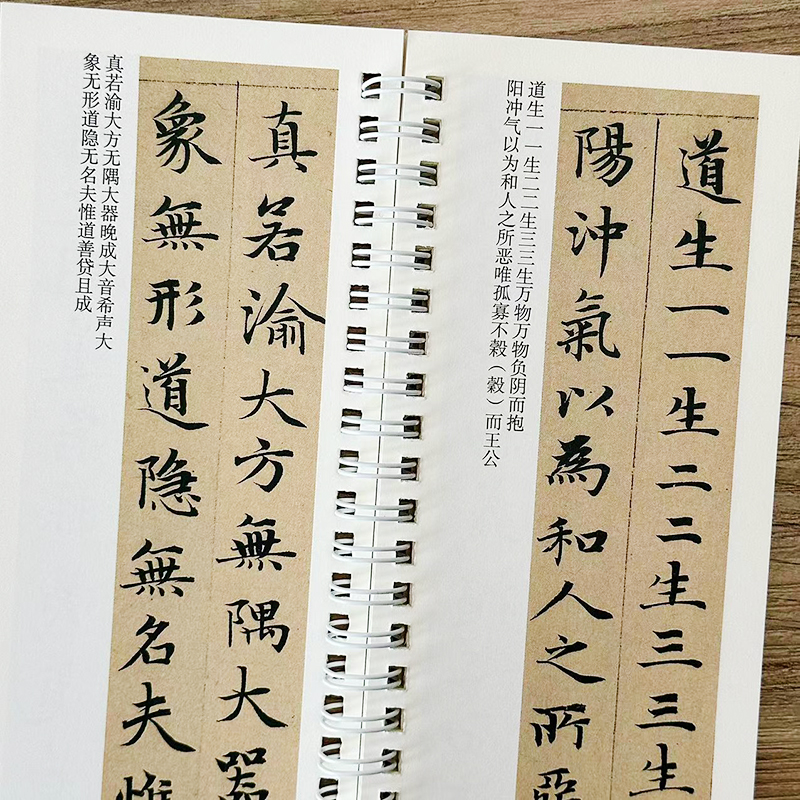 真若渝大方無隅大器
象無形道隐無名夫惟
真若渝大方无隅大器晚成大音希声大
象无形道隐无名夫惟道善贷且成
道生一一生二二生三三生
陽沖氣以為和人之所
道生一一生二二生三三生万物万物负阴而抱
阳冲气以为和人之所恶唯孤寡不榖（穀）而王公